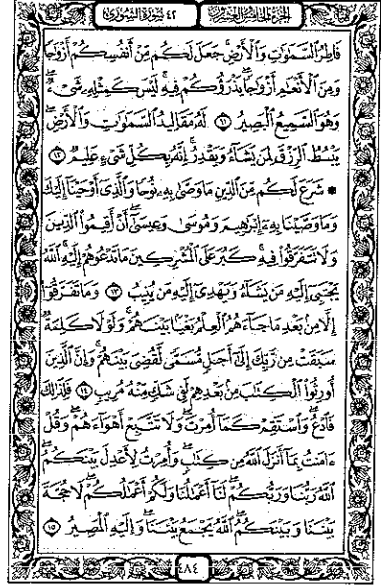 الجزء الخامس والعشرون
٤٢ سورة الشورى
فَاطِرُ السَّمَٰوَٰتِ وَالْأَرْضِ جَعَلَ لَكُم مِّنْ أَنفُسِكُمْ أَزْوَٰجًا
وَمِنَ الْأَنْعَٰمِ أَزْوَٰجًا يَذْرَؤُكُمْ فِيهِ لَيْسَ كَمِثْلِهِ شَىْءٌ
وَهُوَ السَّمِيعُ الْبَصِيرُ ١١ لَهُ مَقَالِيدُ السَّمَٰوَٰتِ وَالْأَرْضِ
يَبْسُطُ الرِّزْقَ لِمَن يَشَاءُ وَيَقْدِرُ إِنَّهُ بِكُلِّ شَىْءٍ عَلِيمٌ ١٢
۞ شَرَعَ لَكُم مِّنَ الدِّينِ مَا وَصَّىٰ بِهِ نُوحًا وَالَّذِى أَوْحَيْنَا إِلَيْكَ
وَمَا وَصَّيْنَا بِهِ إِبْرَٰهِيمَ وَمُوسَىٰ وَعِيسَىٰ أَنْ أَقِيمُوا الدِّينَ
وَلَا تَتَفَرَّقُوا فِيهِ كَبُرَ عَلَى الْمُشْرِكِينَ مَا تَدْعُوهُمْ إِلَيْهِ اللَّهُ
يَجْتَبِى إِلَيْهِ مَن يَشَاءُ وَيَهْدِى إِلَيْهِ مَن يُنِيبُ ١٣ وَمَا تَفَرَّقُوا
إِلَّا مِن بَعْدِ مَا جَاءَهُمُ الْعِلْمُ بَغْيًا بَيْنَهُمْ وَلَوْلَا كَلِمَةٌ
سَبَقَتْ مِن رَّبِّكَ إِلَىٰ أَجَلٍ مُّسَمًّى لَّقُضِىَ بَيْنَهُمْ وَإِنَّ الَّذِينَ
أُورِثُوا الْكِتَٰبَ مِن بَعْدِهِمْ لَفِى شَكٍّ مِّنْهُ مُرِيبٍ ١٤ فَلِذَٰلِكَ
فَادْعُ وَاسْتَقِمْ كَمَا أُمِرْتَ وَلَا تَتَّبِعْ أَهْوَاءَهُمْ وَقُلْ
ءَامَنتُ بِمَا أَنزَلَ اللَّهُ مِن كِتَٰبٍ وَأُمِرْتُ لِأَعْدِلَ بَيْنَكُمُ
اللَّهُ رَبُّنَا وَرَبُّكُمْ لَنَا أَعْمَٰلُنَا وَلَكُمْ أَعْمَٰلُكُمْ لَا حُجَّةَ
بَيْنَنَا وَبَيْنَكُمُ اللَّهُ يَجْمَعُ بَيْنَنَا وَإِلَيْهِ الْمَصِيرُ ١٥
٤٨٤